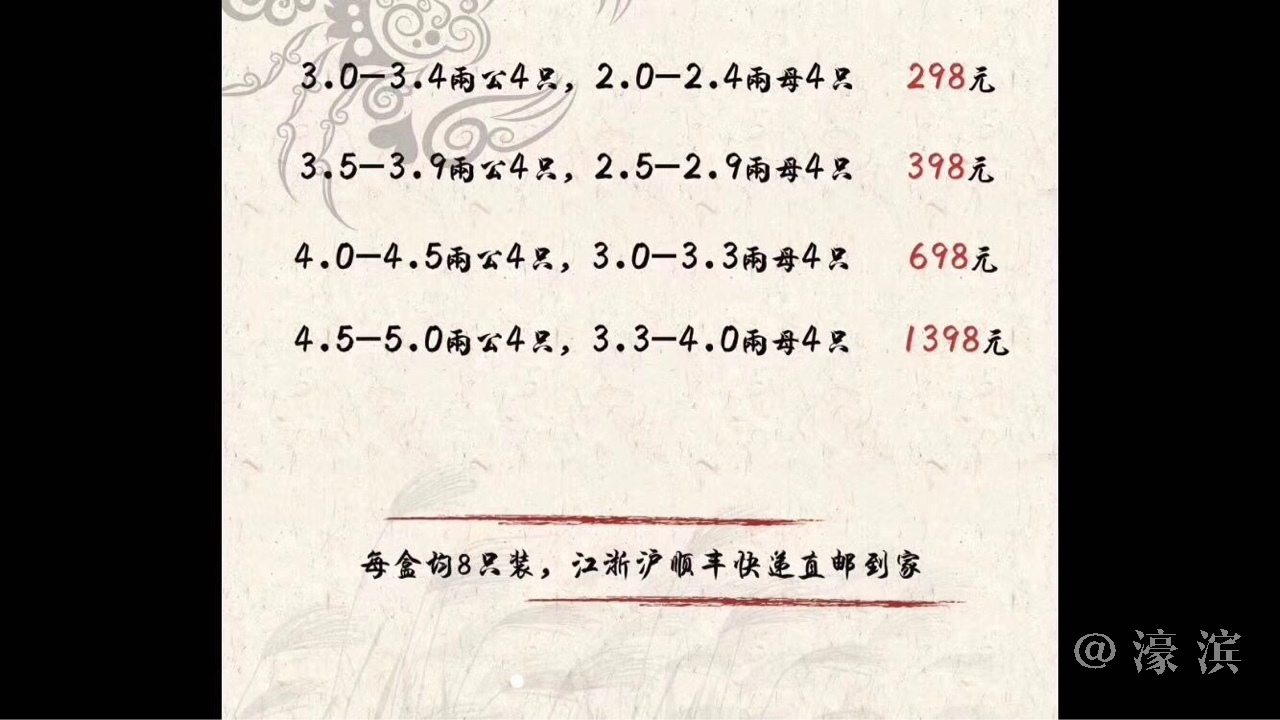 3.0-3.4兩公4只，2.0-2.4兩母4只 298元
3.5-3.9兩公4只，2.5-2.9兩母4只 398元
4.0-4.5兩公4只，3.0-3.3兩母4只 698元
4.5-5.0兩公4只，3.3-4.0兩母4只 1398元
每盒均8只装，江浙沪顺丰快递直邮到家
@濠滨